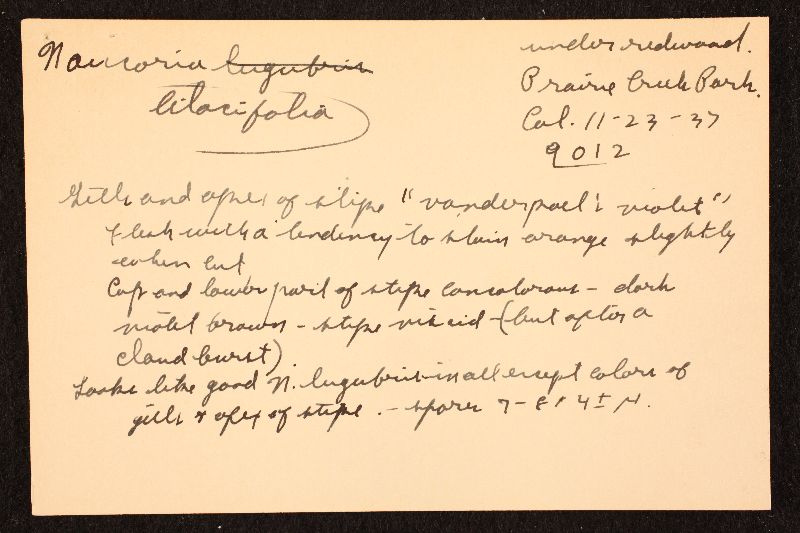 Naucoria lugubris
lilacifolia
under redwood.
Prairie Creek Park.
Cal. 11-23-37
9012
Gills and apex of stipe "vanderpoel's violet"
Flesh with a tendency to stain orange slightly
when cut
Cap and lower part of stipe concolorous - dark
violet brown - stipe viscid - (but after a
cloud burst)
Looks like good N. lugubris in all except colors of
gills & apex of stipe. - spores 7-8 x 4± µ.